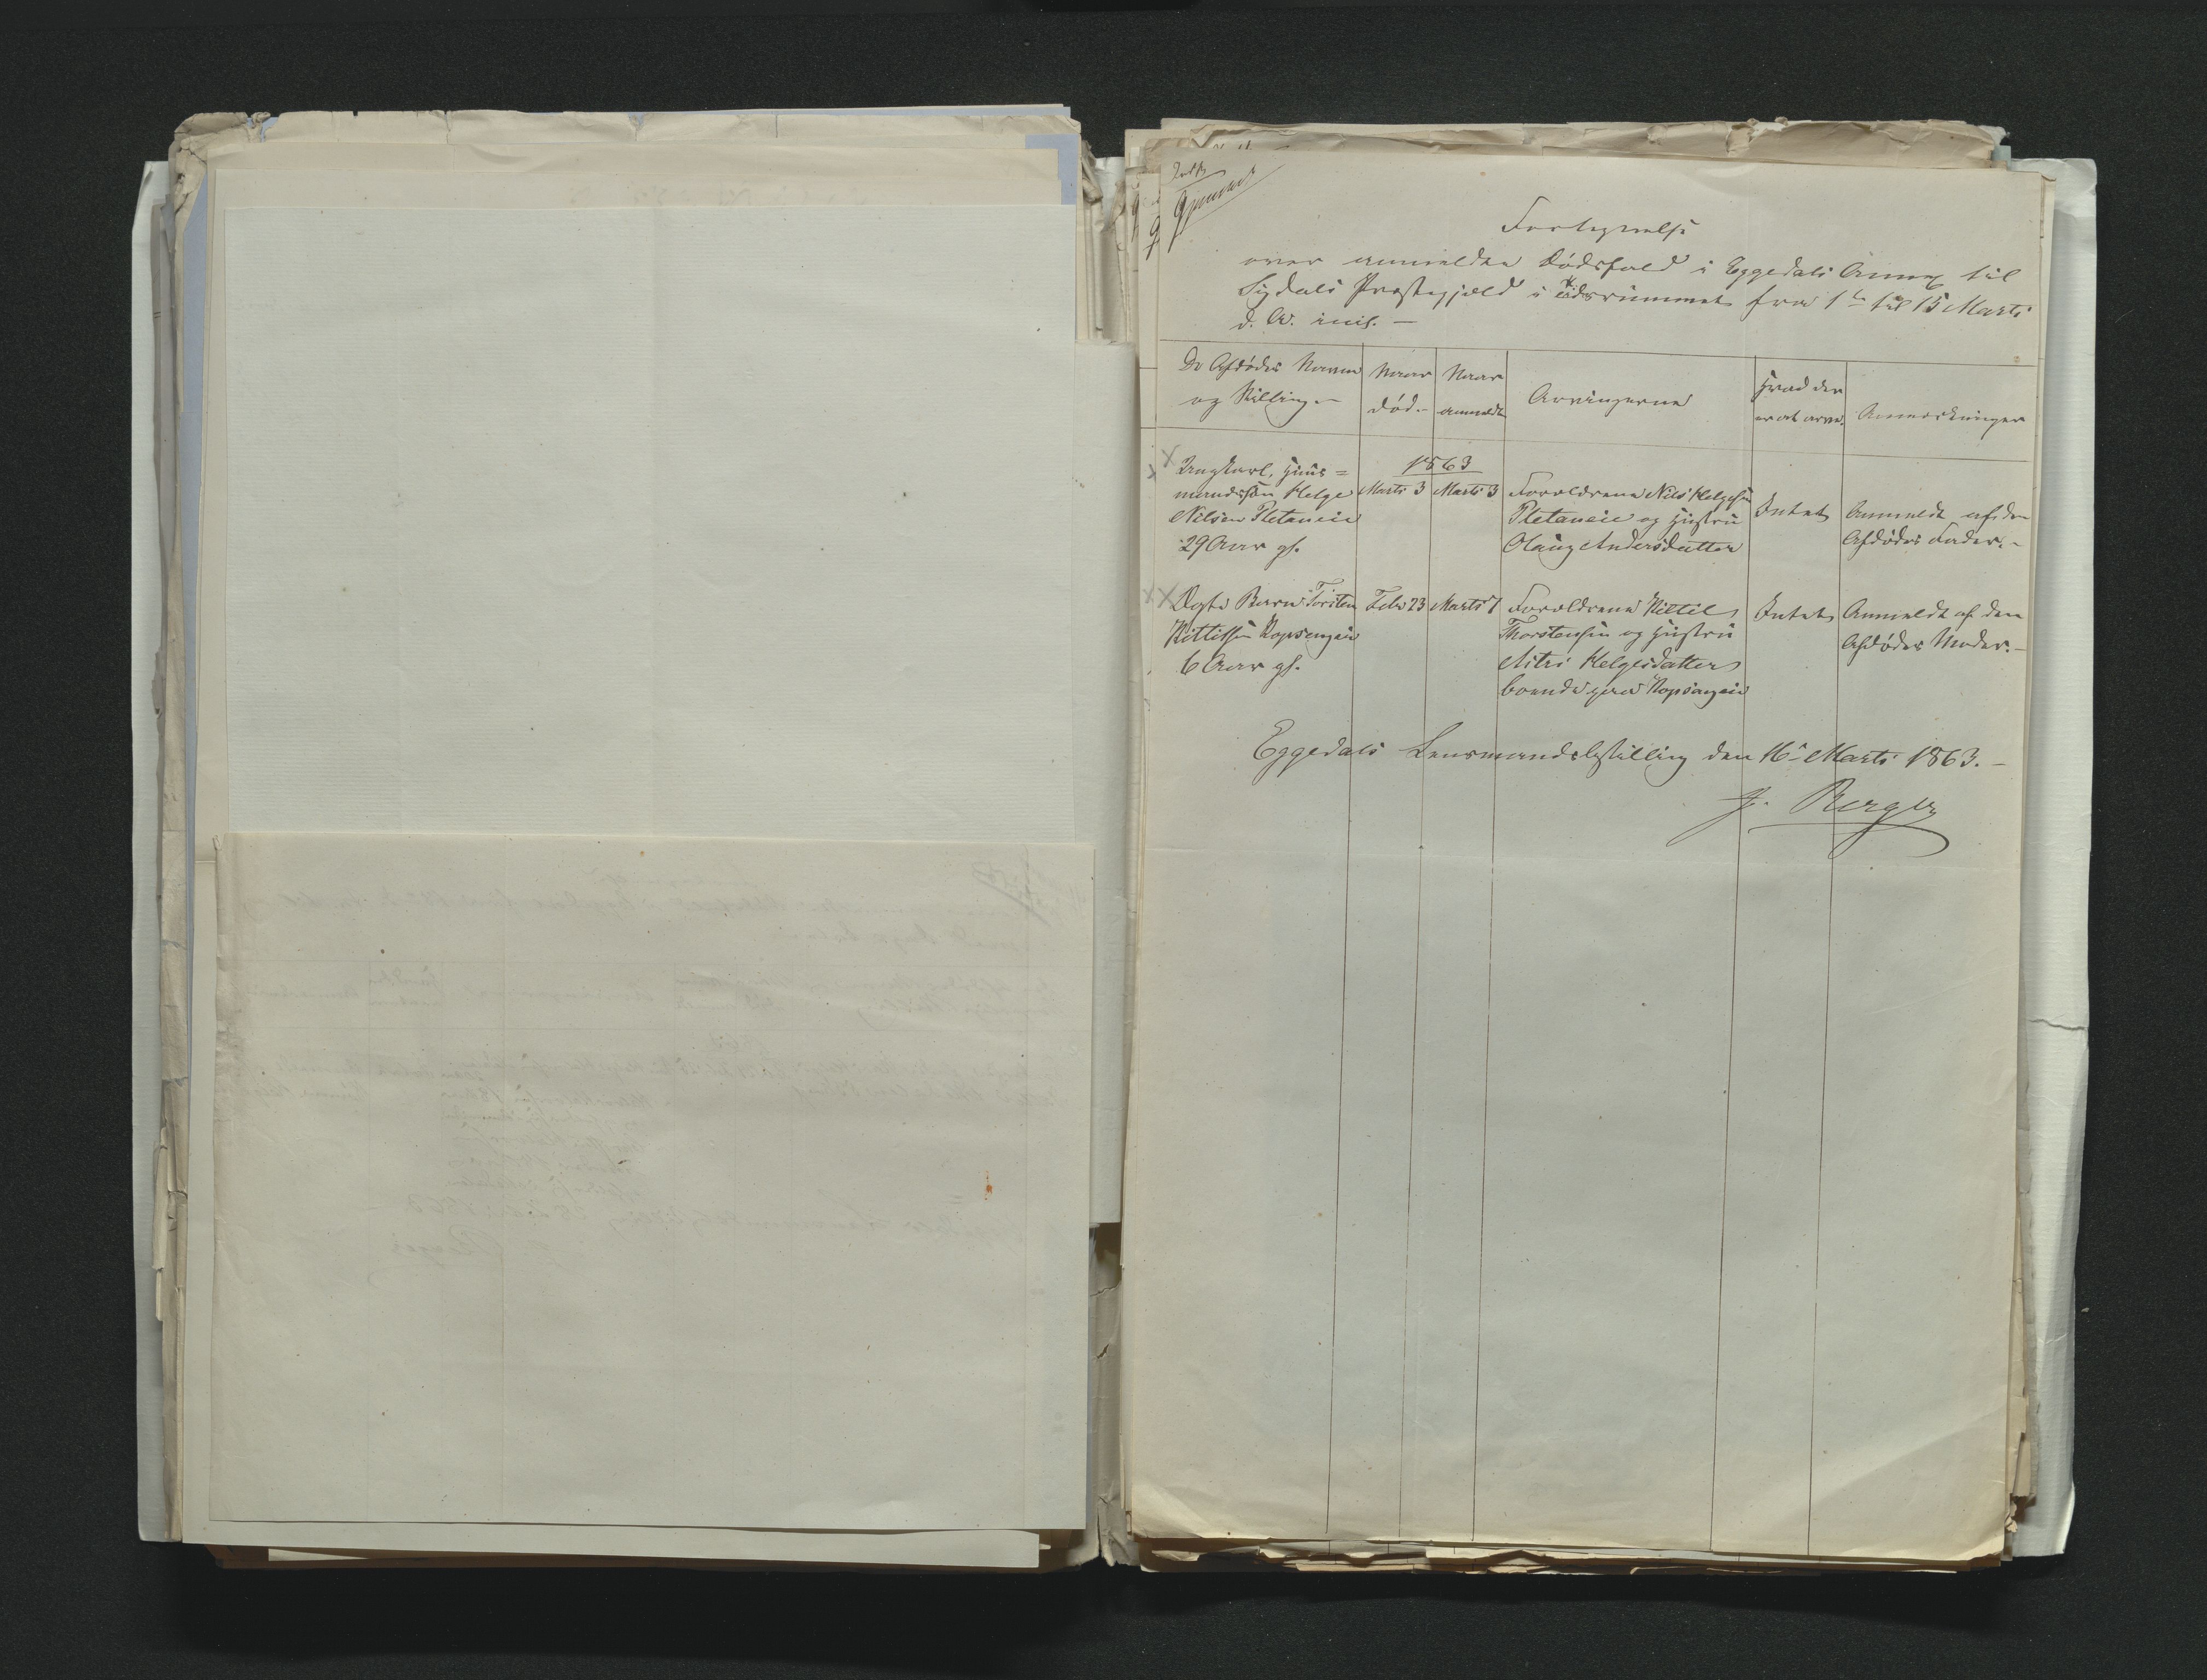 Fortegnelse
over anmeldte Dødsfald i Eggedals Annex til
Sigdals Præstegjæld i Tidsrummet fra 1te til 15 Marts
d. A. incl. —
De Afdødes Navne og Stilling. —
Naar død. —
Naar anmeldt
Arvingerne
Hvad der er at arve.
Anmærkninger
1863
Ungkarl, Huus=
mandssøn Helge
Nilsen Pletaneie
29 Aar gl.
Marts 3
Marts 3
Forældrene Nils Helgesen
Pletaneie og Hustru
Olaug Andersdatter
Intet
Anmeldt af den
Afdødes Fader. —
Ægte Barn Torsten
Kittilsen Kopsengeie
6 Aar gl.
Febr 23
Marts 7
Forældrene Kittil
Thorstensen og Hustru
Sitri Helgesdatter
boende paa Kopsengeie
Intet
Anmeldt af den
Afdødes Moder. —
Eggedals Lensmandsbestilling den 16de Marts 1863. —
J. Berger